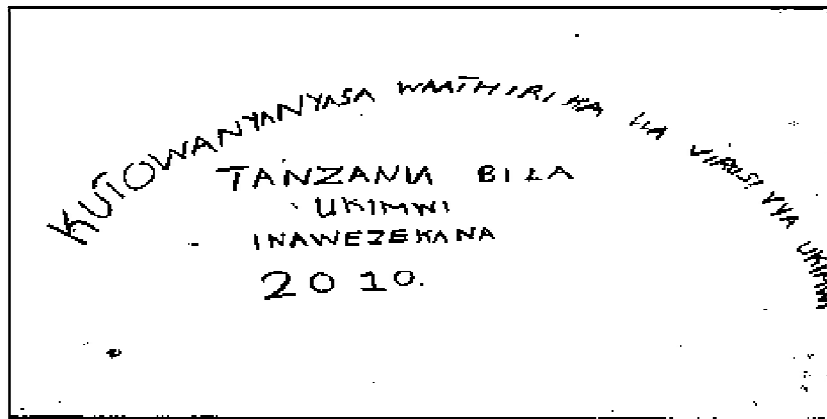 KUTOWANYANYASA WAATHIRIKA WA VIRUSI VYA UKIMWI
TANZANIA BILA
UKIMWI
INAWEZEKANA
2010.